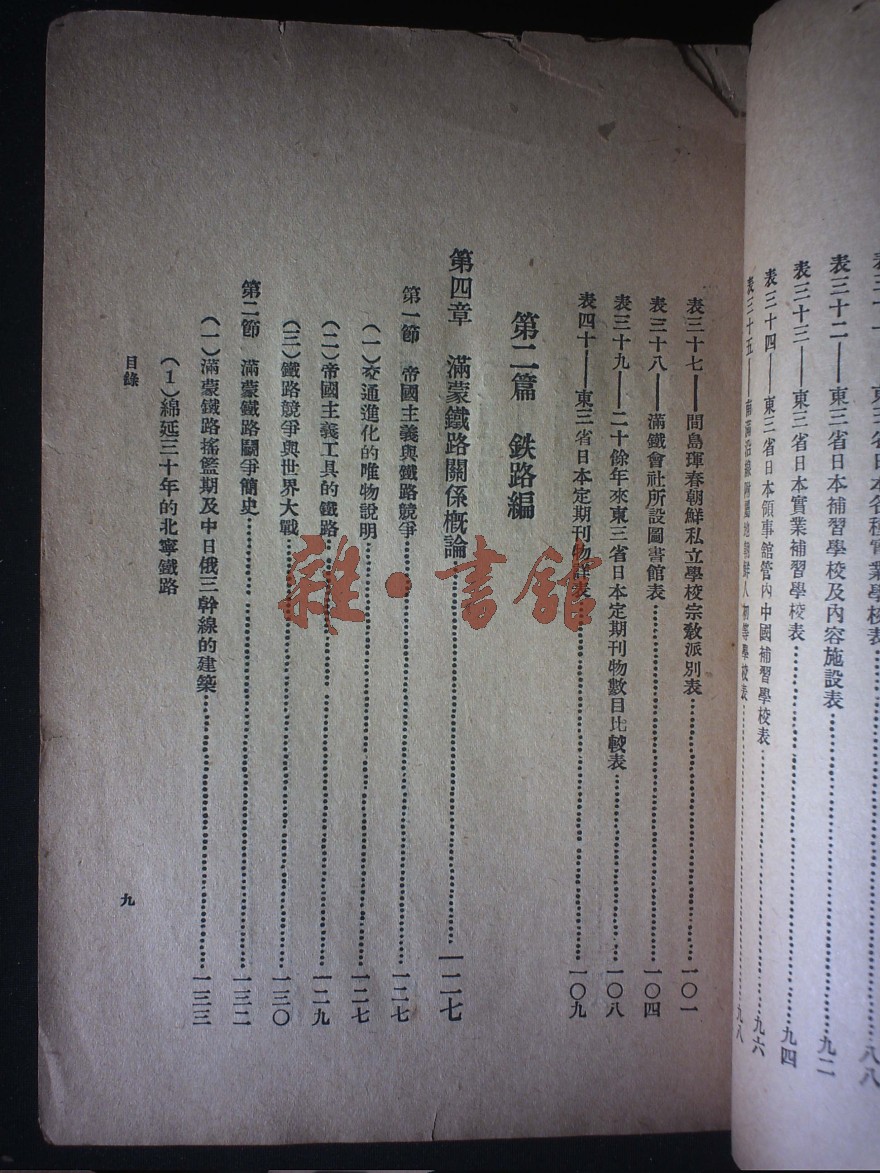 表三十二——東三省日本補習學校及內容施設表……九二
表三十三——東三省日本實業補習學校表……九四
表三十四——東三省日本領事館管內中國補習學校表……九六
表三十五——南滿沿線附屬地朝鮮人初等學校表……九八
表三十七——間島琿春朝鮮私立學校宗敎派別表……一〇一
表三十八——滿鐵會社所設圖書館表……一〇四
表三十九——二十餘年來東三省日本定期刊物數目比較表……一〇八
表四十——東三省日本定期刊物詳表……一〇九
第二篇 鉄路編
第四章 滿蒙鐵路關係槪論……一二七
第一節 帝國主義與鐵路競爭……一二七
（一）交通進化的唯物說明……一二七
（二）帝國主義工具的鐵路……一二九
（三）鐵路競爭與世界大戰……一三〇
第二節 滿蒙鐵路鬭爭簡史……一三二
（一）滿蒙鐵路搖籃期及中日俄三幹線的建築……一三三
（1）綿延三十年的北寧鐵路
目錄
九
雜·書館